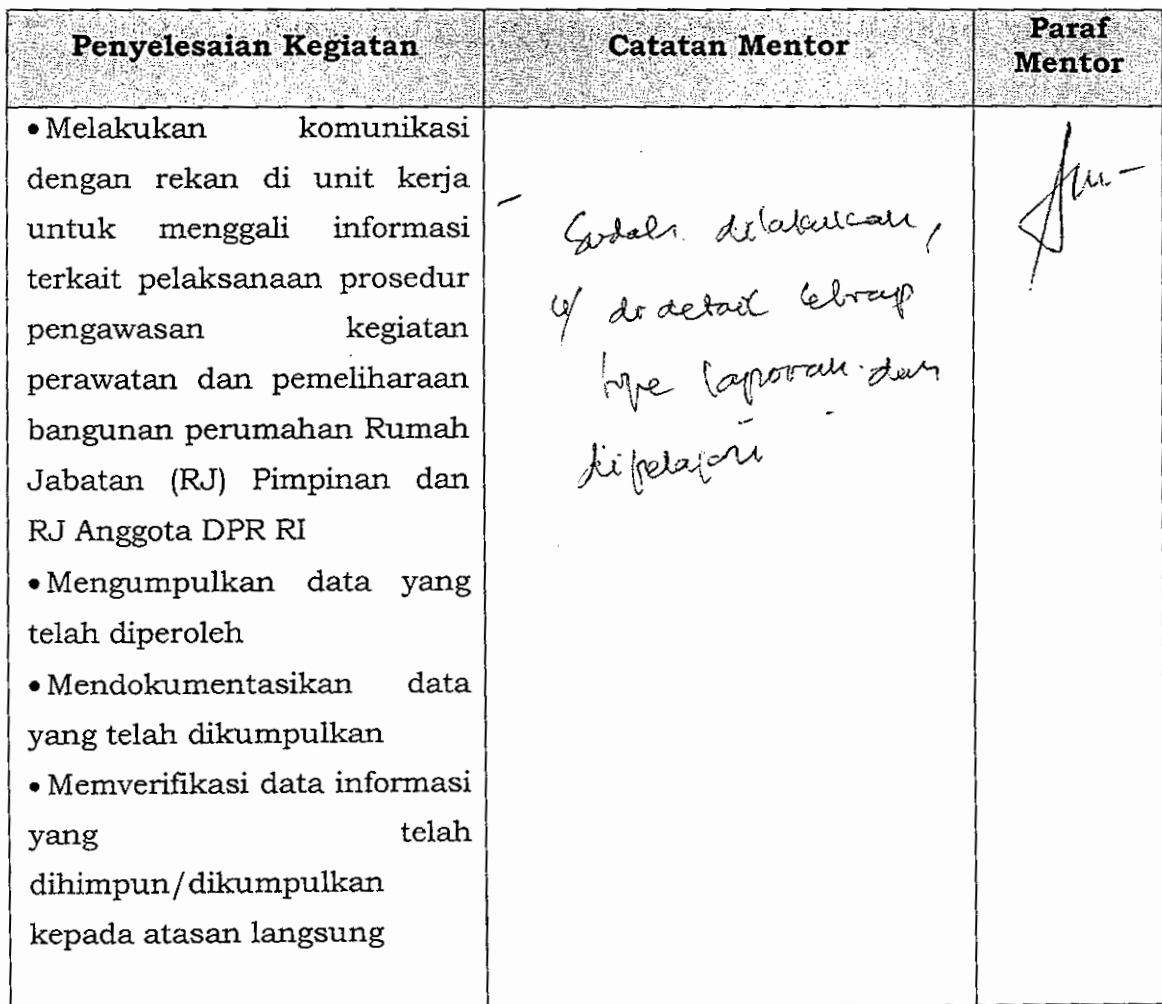 Penyelesaian Kegiatan
Catatan Mentor
Paraf
Mentor
• Melakukan komunikasi
dengan rekan di unit kerja
untuk menggali informasi
terkait pelaksanaan prosedur
pengawasan kegiatan
perawatan dan pemeliharaan
bangunan perumahan Rumah
Jabatan (RJ) Pimpinan dan
RJ Anggota DPR RI
• Mengumpulkan data yang
telah diperoleh
• Mendokumentasikan data
yang telah dikumpulkan
• Memverifikasi data informasi
yang telah
dihimpun/dikumpulkan
kepada atasan langsung
- Sudah dilakukan,
di detail
laporan dan
dipelajari